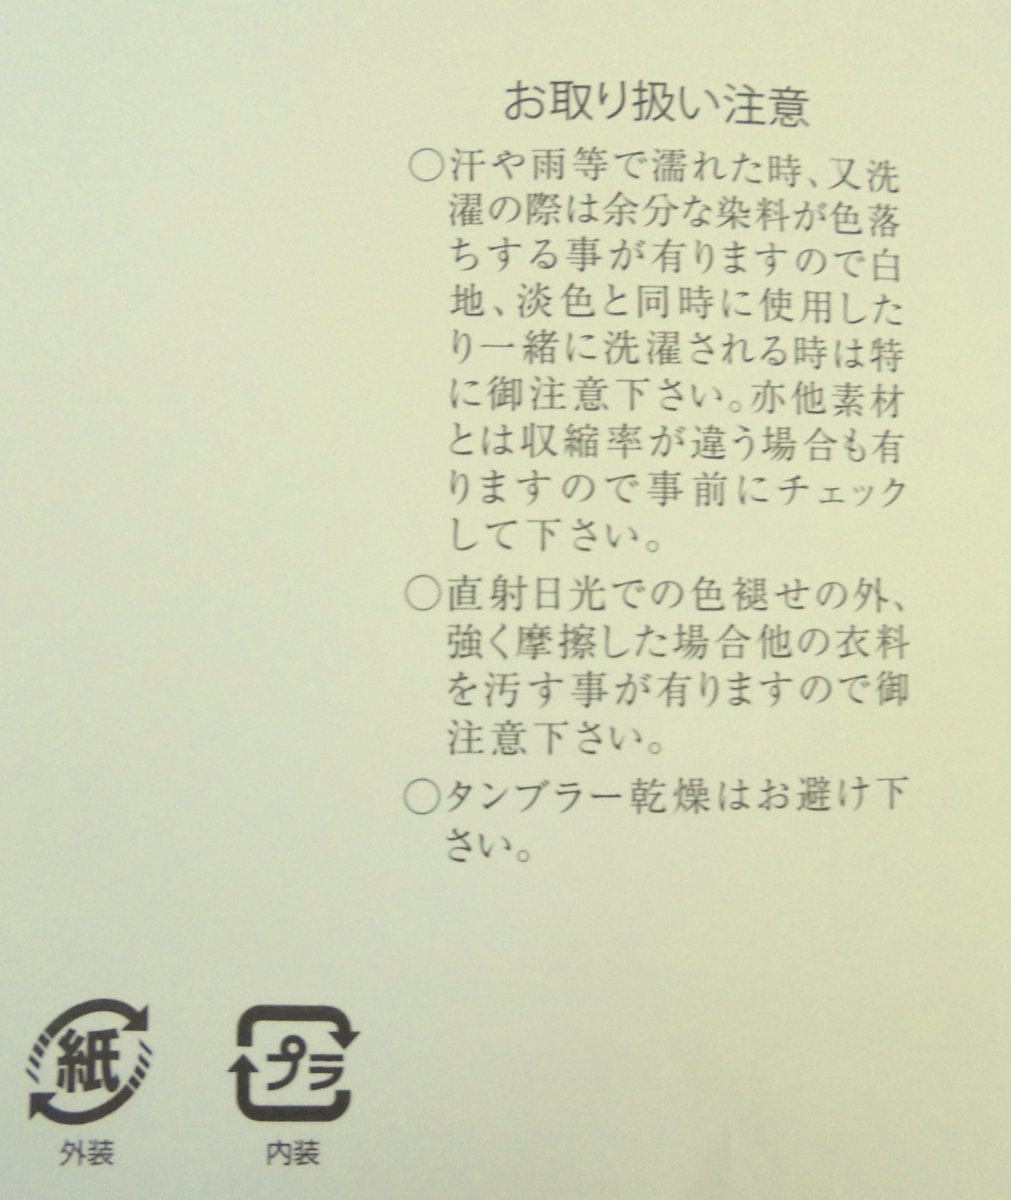 お取り扱い注意
○汗や雨等で濡れた時、又洗
濯の際は余分な染料が色落
ちする事が有りますので白
地、淡色と同時に使用した
り一緒に洗濯される時は特
に御注意下さい。亦他素材
とは収縮率が違う場合も有
りますので事前にチェック
して下さい。
○直射日光での色褪せの外、
強く摩擦した場合他の衣料
を汚す事が有りますので御
注意下さい。
○タンブラー乾燥はお避け下
さい。
紙
プラ
外装
内装